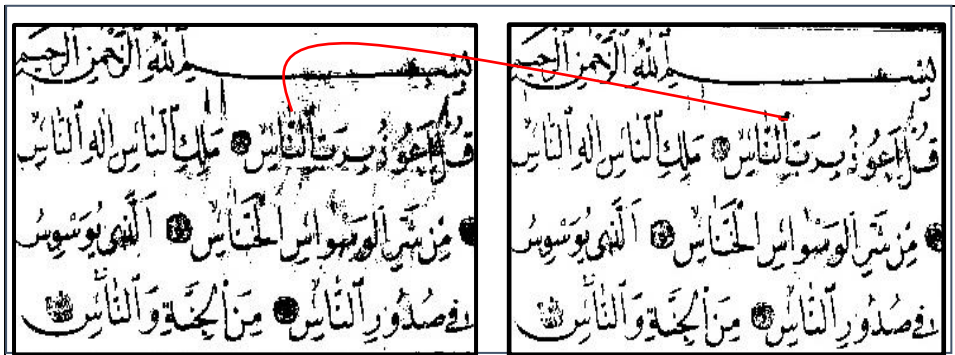 بِسْمِ ٱللَّهِ ٱلرَّحْمٰنِ ٱلرَّحِيمِ
قُلْ أَعُوذُ بِرَبِّ ٱلنَّاسِ ۝ مَلِكِ ٱلنَّاسِ إِلٰهِ ٱلنَّاسِ
۝ مِن شَرِّ ٱلْوَسْوَاسِ ٱلْخَنَّاسِ ۝ ٱلَّذِي يُوَسْوِسُ
فِي صُدُورِ ٱلنَّاسِ ۝ مِنَ ٱلْجِنَّةِ وَٱلنَّاسِ ۝
بِسْمِ ٱللَّهِ ٱلرَّحْمٰنِ ٱلرَّحِيمِ
قُلْ أَعُوذُ بِرَبِّ ٱلنَّاسِ ۝ مَلِكِ ٱلنَّاسِ إِلٰهِ ٱلنَّاسِ
۝ مِن شَرِّ ٱلْوَسْوَاسِ ٱلْخَنَّاسِ ۝ ٱلَّذِي يُوَسْوِسُ
فِي صُدُورِ ٱلنَّاسِ ۝ مِنَ ٱلْجِنَّةِ وَٱلنَّاسِ ۝